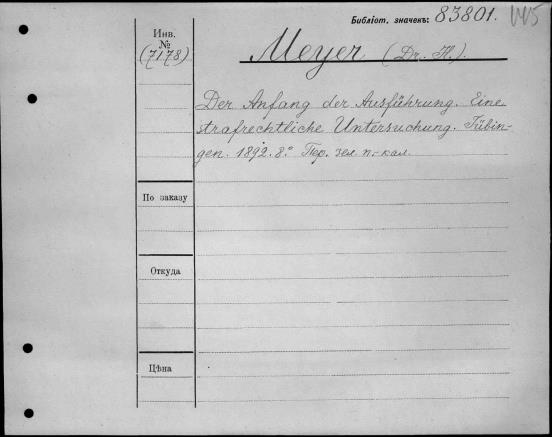 Библіот. значекъ: 83801.
Инв.
№
(7178)
Meyer (Dr. H.).
Der Anfang der Ausführung. Eine
strafrechtliche Untersuchung. Tübin-
gen. 1892. 8.° Пер. зел. п.-кал.
По заказу
Откуда
Цѣна